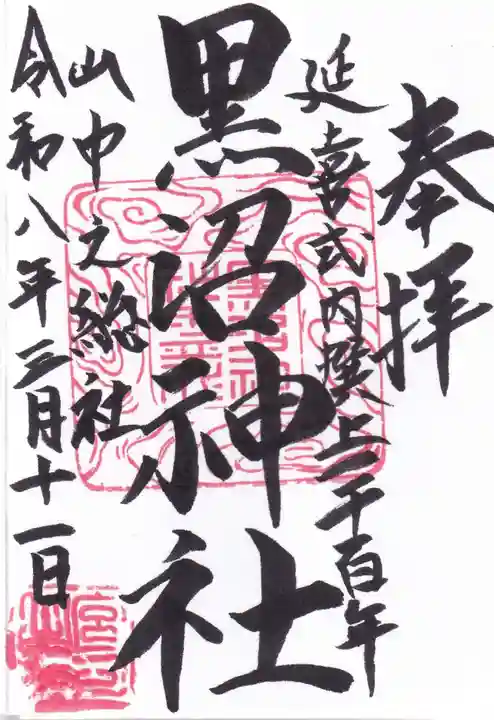 奉拝
延喜式内撰上一千百年
黒沼神社
山中之総社
令和八年三月十一日